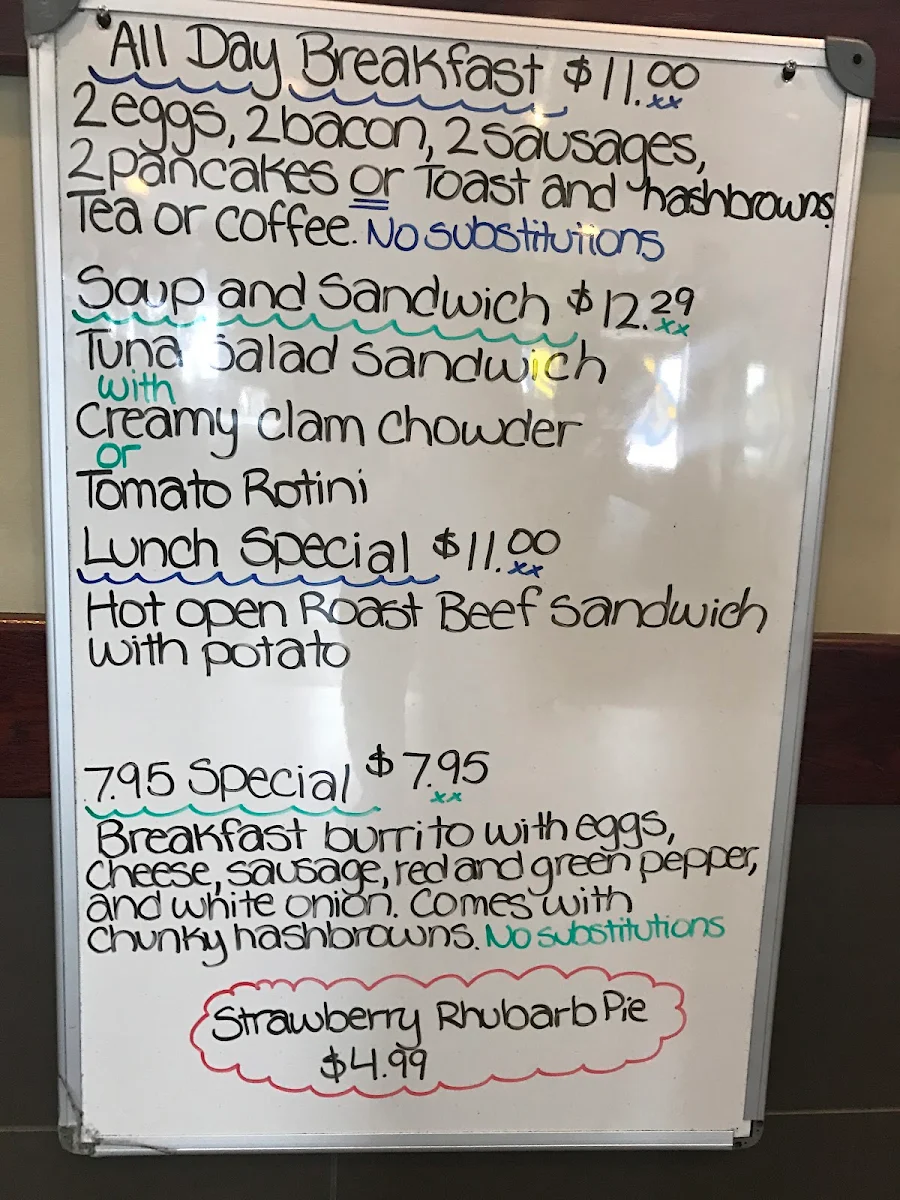 All Day Breakfast $11.00
xx
2 eggs, 2 bacon, 2 sausages,
2 pancakes or Toast and hashbrowns.
Tea or coffee. No substitutions
Soup and Sandwich $12.29
xx
Tuna Salad Sandwich
with
Creamy Clam Chowder
or
Tomato Rotini
Lunch Special $11.00
xx
Hot open Roast Beef sandwich
with potato
7.95 Special $7.95
xx
Breakfast burrito with eggs,
cheese, sausage, red and green pepper,
and white onion. Comes with
chunky hashbrowns. No substitutions
Strawberry Rhubarb Pie
$4.99